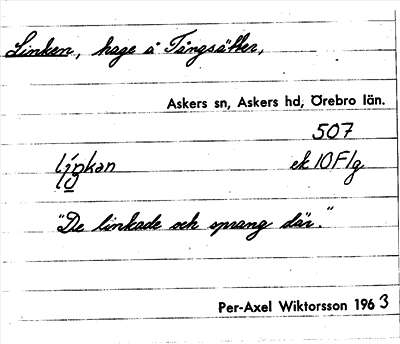 Linken, hage å Tångsätter,
Askers sn, Askers hd, Örebro län.
507
ek 10F lg
"De linkade och sprang där."
Per-Axel Wiktorsson 1963